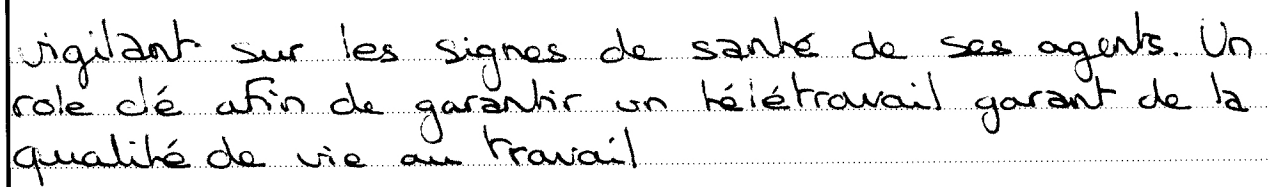 vigilant sur les signes de santé de ses agents. Un
role clé afin de garantir un télétravail garant de la
qualité de vie au travail